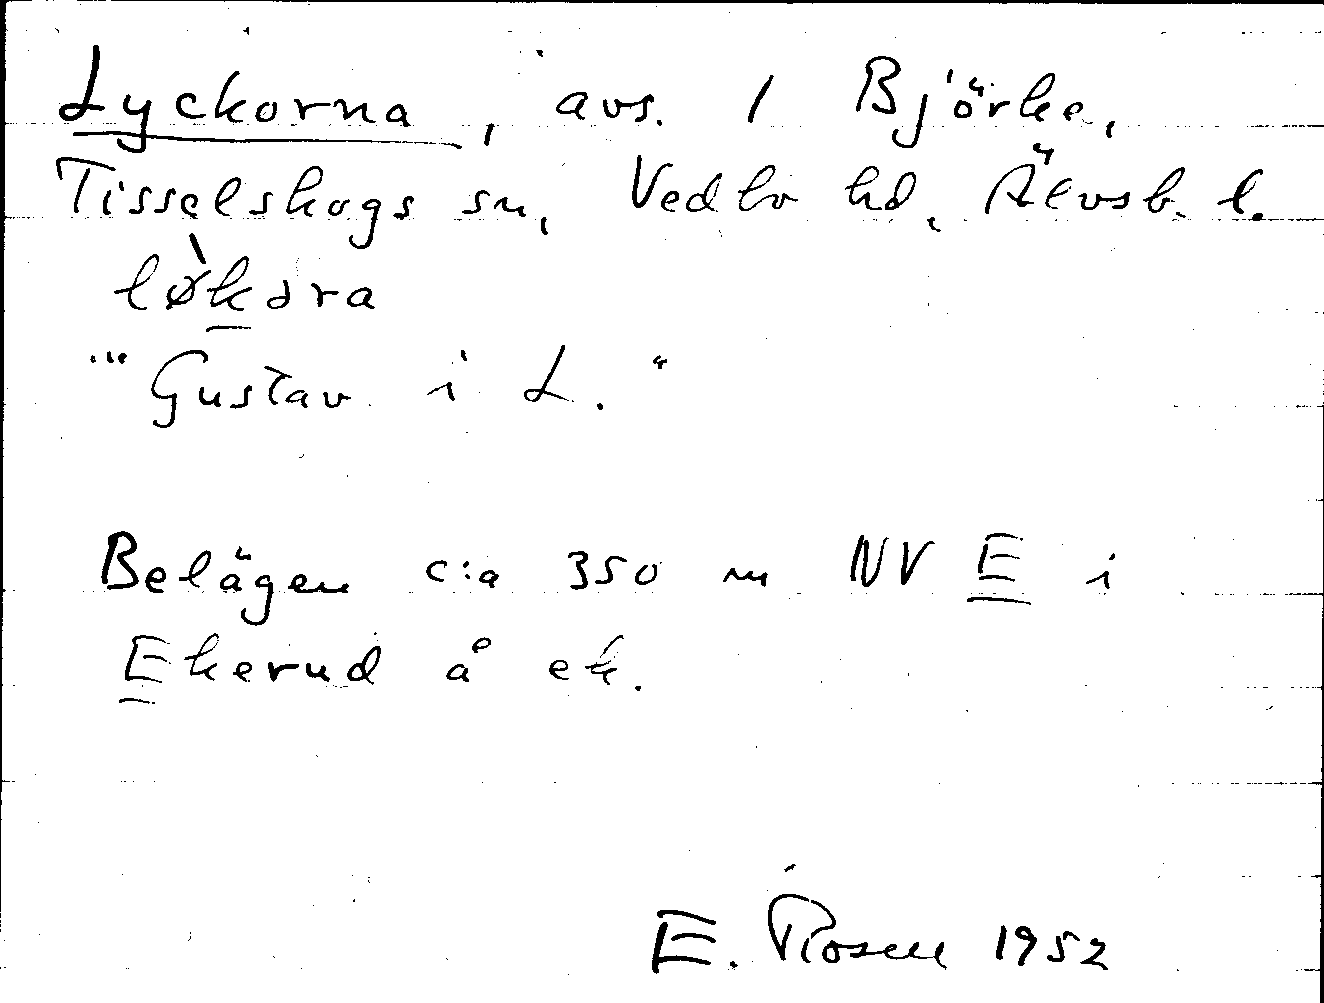 Lyckorna, avs. 1 Björke,
Tisselskogs sn, Vedbo hd, Älvsb. l.
lø̀kəra
"Gustav i L."
Belägen c:a 350 m NV E i
Ekerud å ek.
E. Rosen 1952